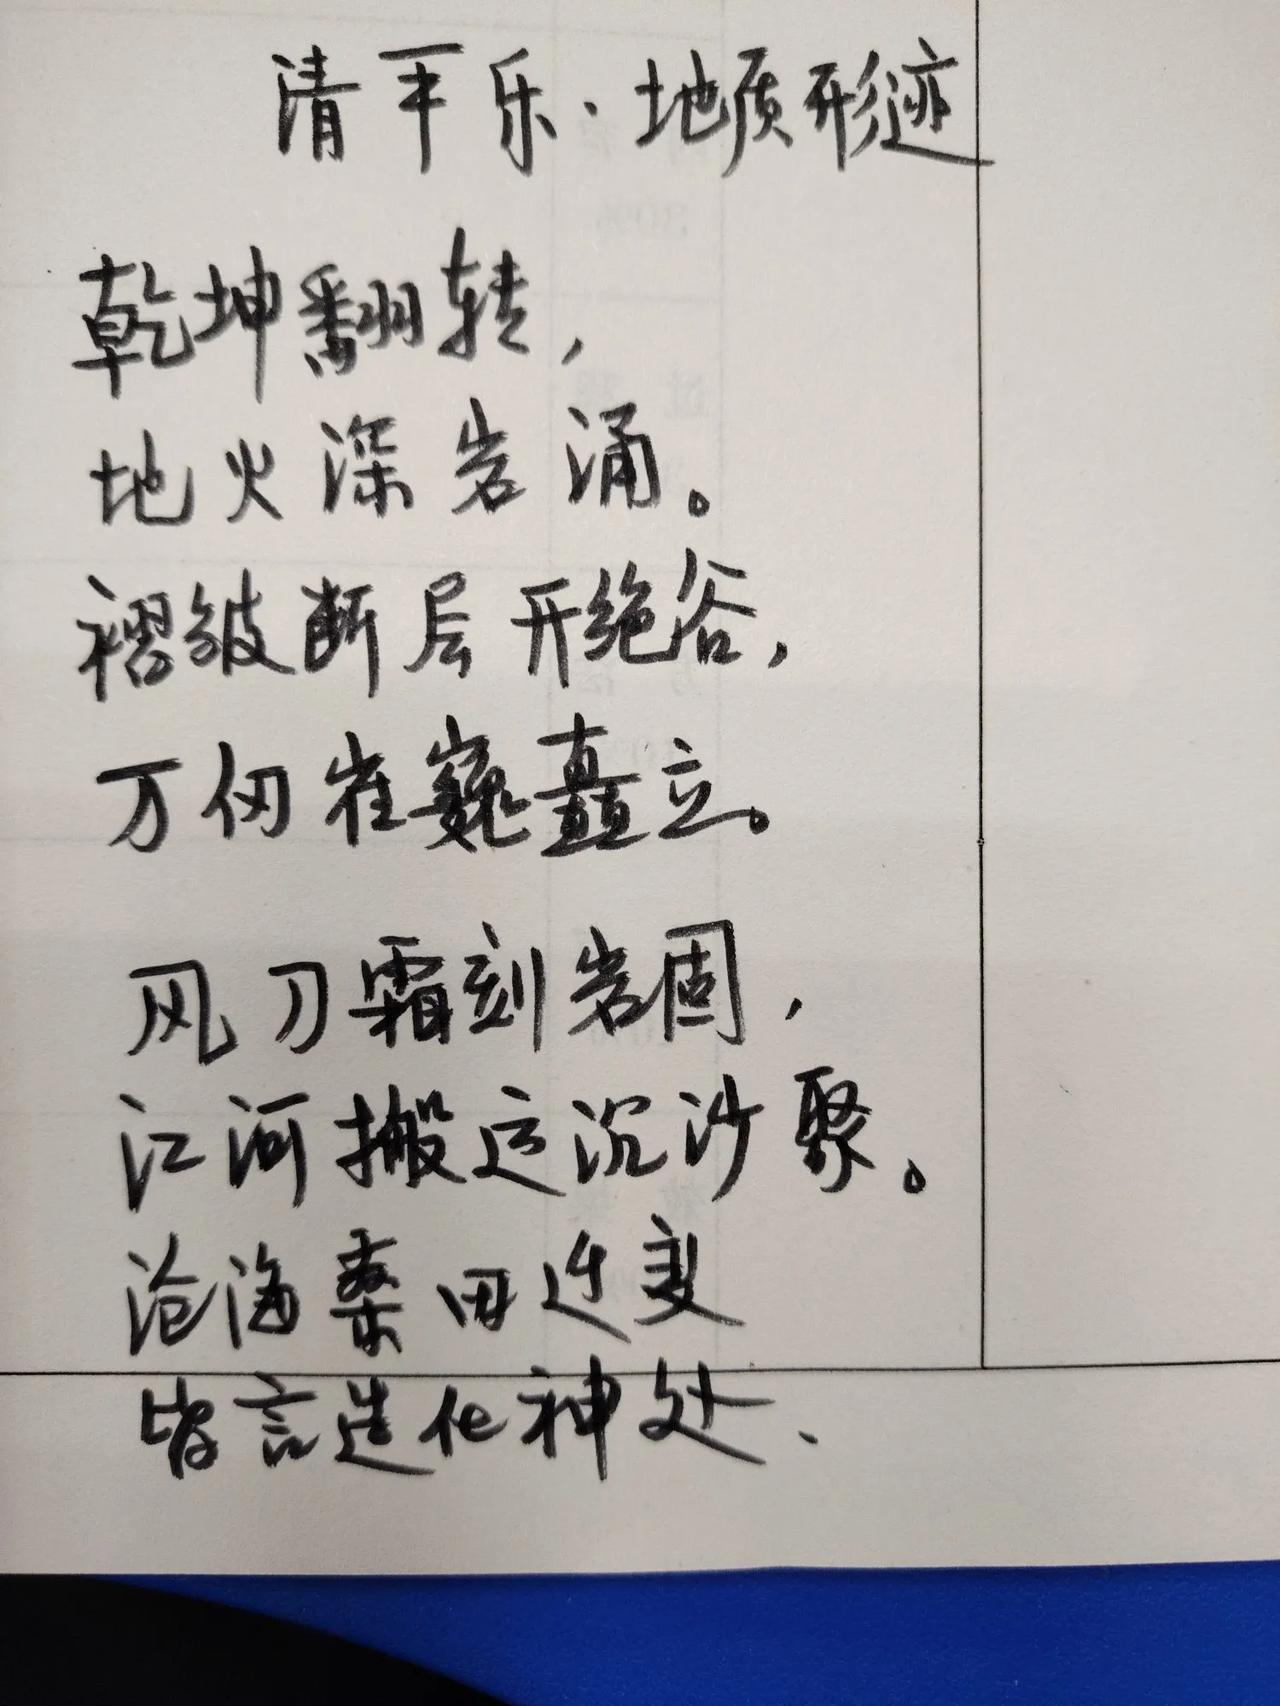 清平乐·地质形迹
乾坤翻转，
地火深岩涌。
褶皱断层形绝谷，
万仞崔巍矗立。
风刀霜刻岩固，
江河搬运沉沙聚。
沧海桑田迁变
皆言造化神处、